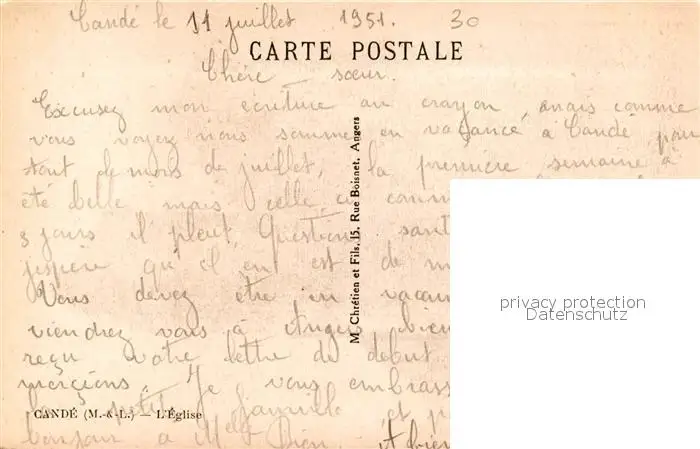 Candé le 11 juillet 1951. 30
CARTE POSTALE
Chère sœur.
Excusez mon écriture au crayon, mais comme
vous voyez nous sommes en vacance à Candé pour
tout le mois de juillet, la première semaine à
été belle mais celle ci comm
3 jours il pleut, Question sant
jespère qu'il en est de m
Vous devez être en vacan
viendrez vous à Angers bien
reçu votre lettre du début
mercions. Je vous embrass
petite famille et p
bonjour à
M. Chrétien et Fils, 15, Rue Boisnet, Angers
CANDÉ (M.-&-L.) — L'Église
privacy protection
Datenschutz